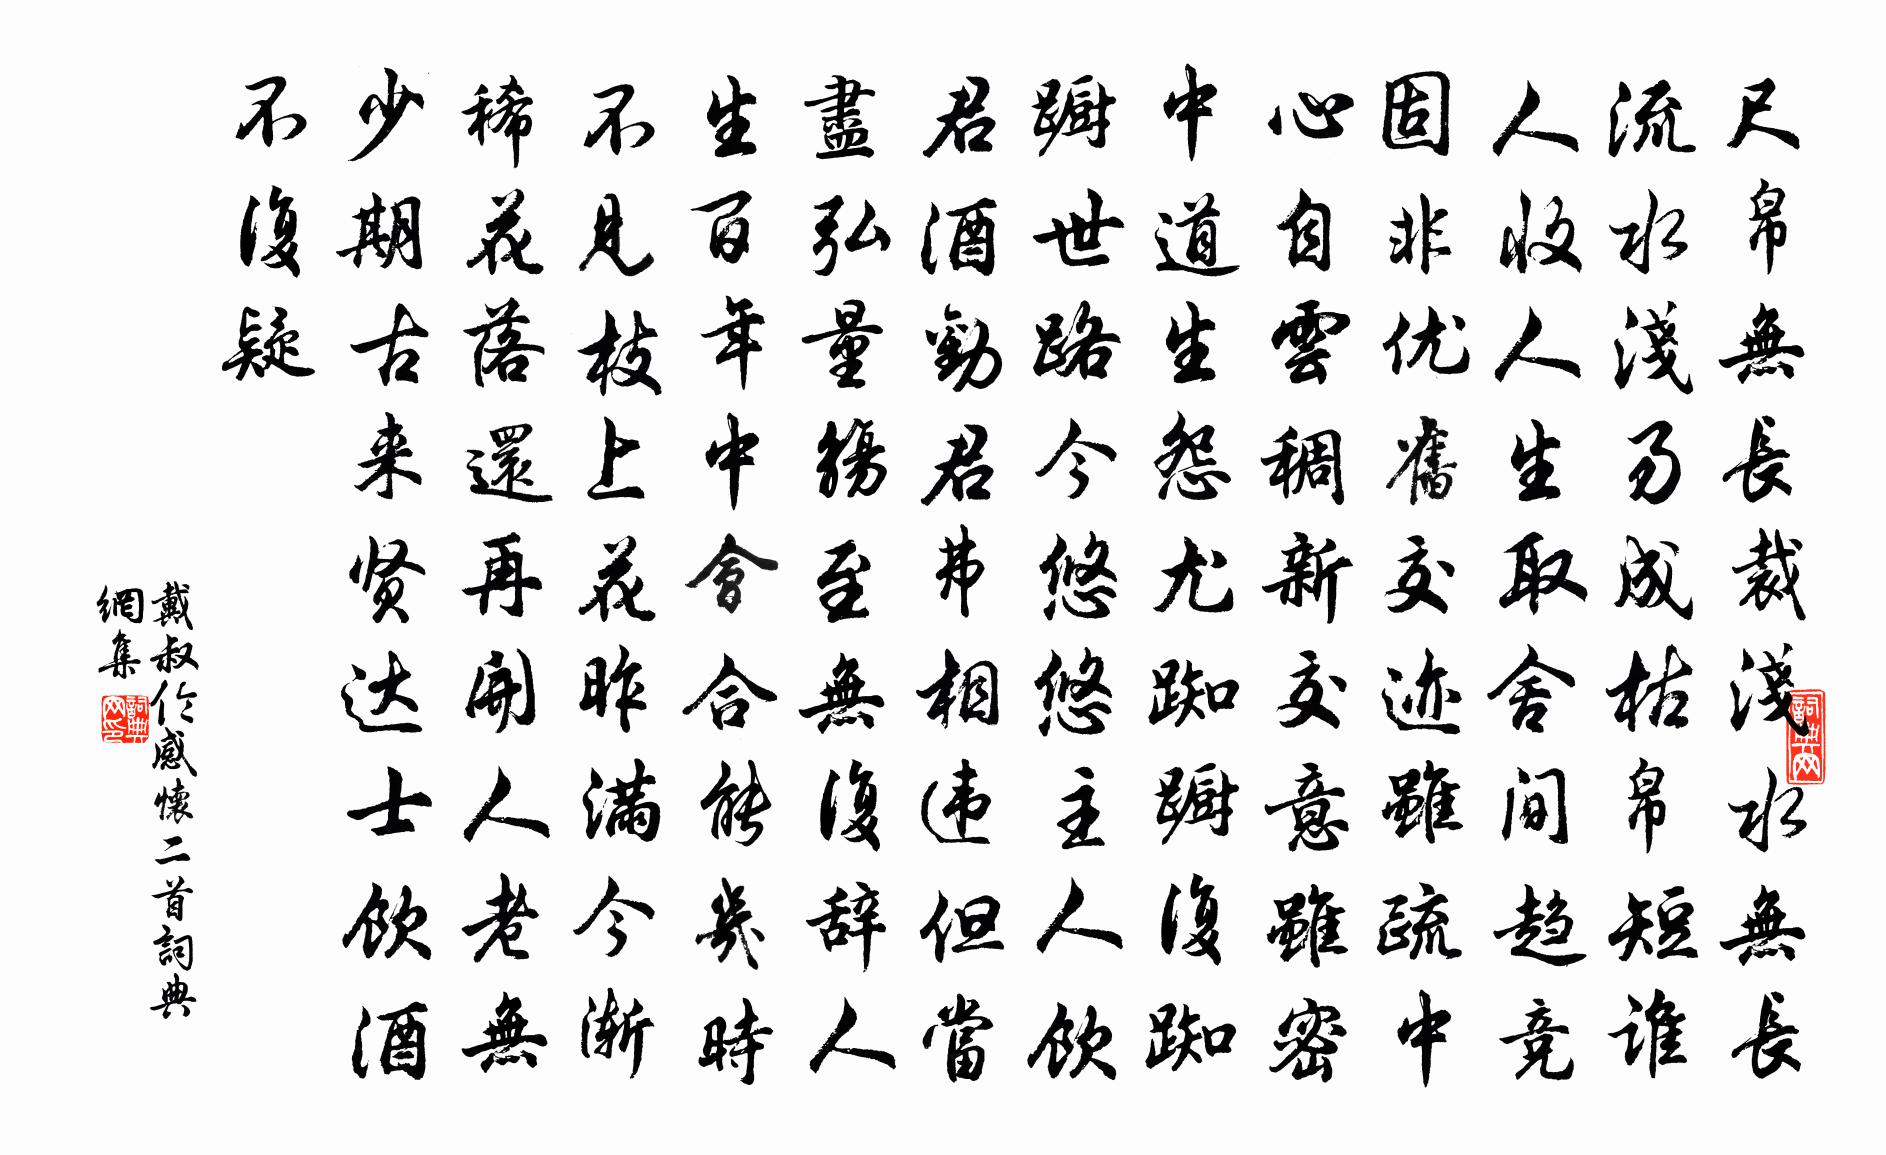 尺帛無長裁淺水無長
流水淺易成枯帛短誰
人收人生取舍间趋竞
固非优舊交迹雖疏中
心自雲稠新交意雖密
中道生怨尤踟蹰復踟
蹰世路今悠悠主人饮
君酒勸君弗相违但當
盡弘量觴至無復辞人
生百年中會合能幾時
不見枝上花昨满今渐
稀花落還再開人老無
少期古来贤达士饮酒
不復疑
戴叔伦感懷二首詞典
網集
詞典网
詞典网印